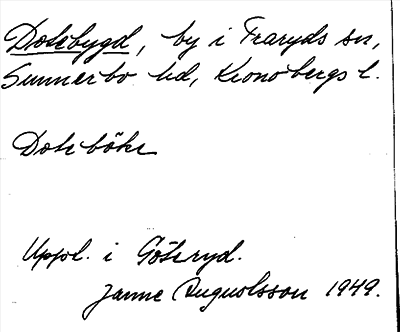 Dotebygd, by i Traryds sn,
Sunnerbo hd, Kronobergs l.
Dotebökе
Uppt. i Göteryd.
Janne Augustsson 1949.